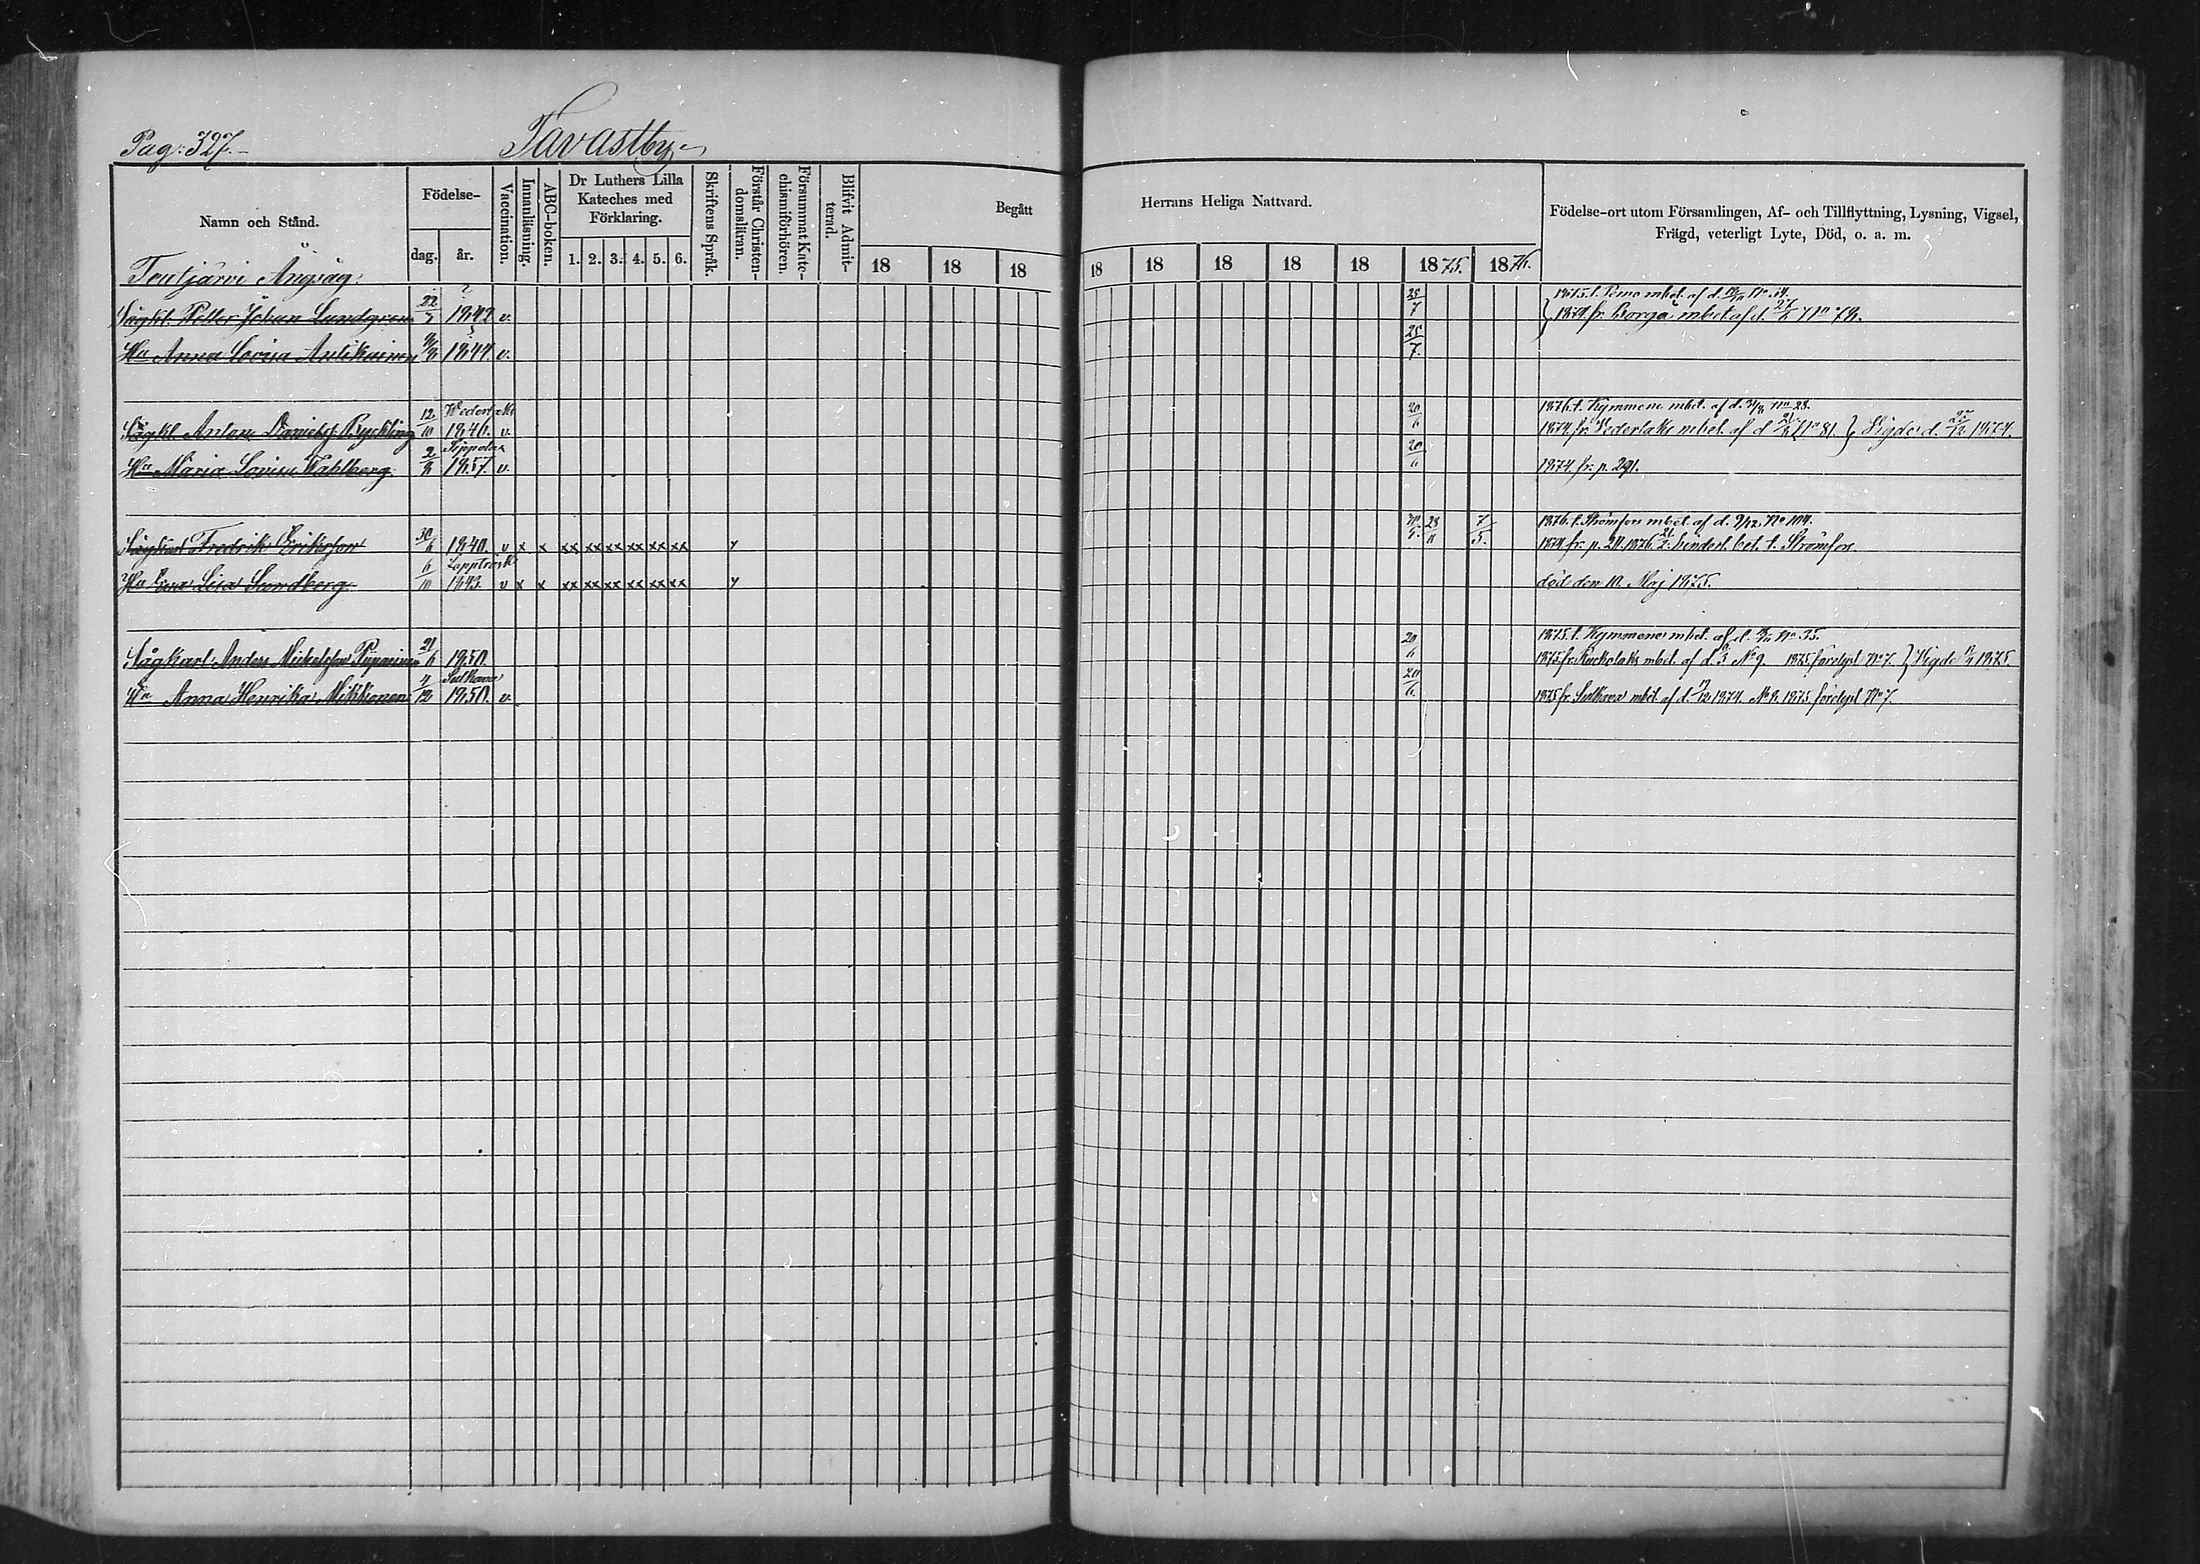 Pag: 327.
Tavastby
Namn och Stånd.
Födelse-
dag. år.
Vaccination.
Innanläsning.
ABC-boken.
Dr Luthers Lilla
Kateches med
Förklaring.
1. 2. 3. 4. 5. 6.
Skriftens Språk.
Förstår Christen-
domsläran.
Försummat Kate-
chismiförhören.
Blifvit Admit-
terad.
Begått
18 18 18
Herrans Heliga Nattvard.
18 18 18 18 18 1875. 1876.
Födelse-ort utom Församlingen, Af- och Tillflyttning, Lysning, Vigsel,
Frägd, veterligt Lyte, Död, o. a. m.
Teutjärvi Ångsåg:
Sågkl. Petter Johan Lundgren 22/3 1842 v. 25/7
1875 t. Perno mbet. af d.
1874 fr. Borgå mbet. af d. No 78.
Hu Anna Lovisa Antikainen 1844 v. 25/7
Sågkl. Anton Danielss. Ryckling 12/10 Wederlaks 1846. v. 20/6
1876 t. Kymmene mbet. af d. No 28.
1874 fr. Vederlaks mbet. af d. No 81. } Vigde d. 27/12 1874.
Hu Maria Lovisa Wahlberg 2/8 1857 v. 20/6 1874. fr. p. 291.
Sågkarl Fredrik Eriksson 30/6 1840. v x x xx xx xx xx xx xx y 28/11 7/5.
1876. t. Strömfors mbet. af d. 9/12 No 104.
1874 fr. p. 20. 1876 21/2 hinderl. bet. t. Strömfors
Hu Eva Lisa Sundberg 6/10 Lapptresk 1843. v x x xx xx xx xx xx xx y
död den 10. Maj 1875.
Sågkarl Anders Mickelsson 21/6 1850. 20/6
1875 t. Kymmene mbet. af d. No 35.
1875 fr. mbet. af d. No 9. 1875 förelyst No 7. } Vigde 1875
Hu Anna Henrika Mikkonen 4/12 Sulkava 1850. v. 20/6.
1875 fr. Sulkava mbet. af d. 1874. No 8. 1875. förelyst No 7.